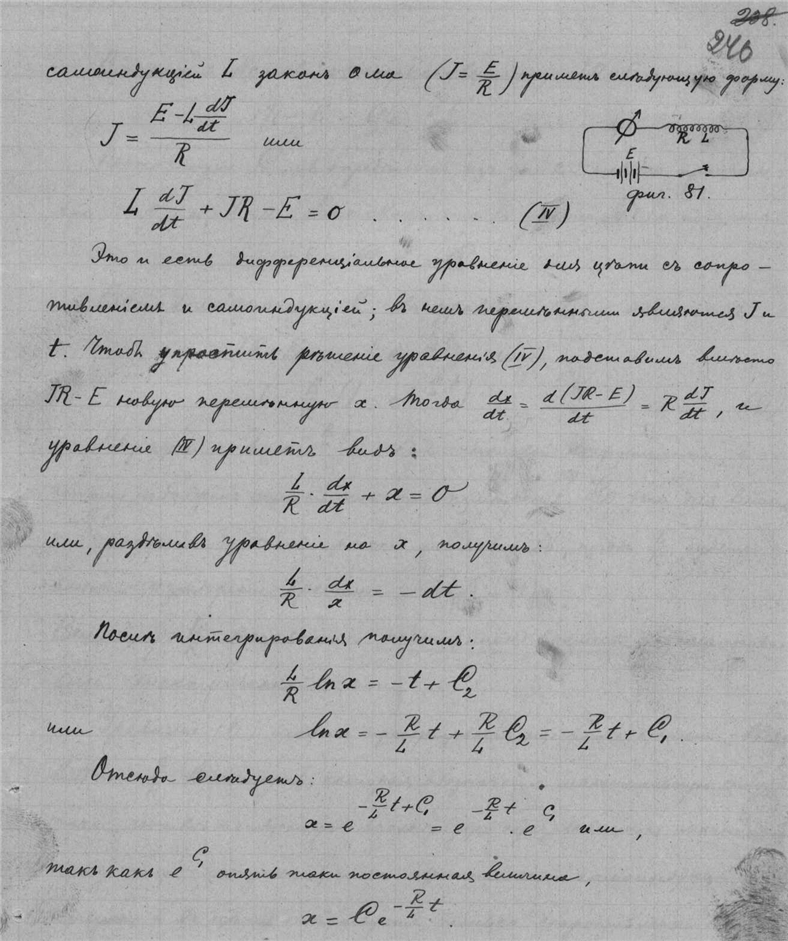 228.
240
самоиндукціей L законъ Ома (J = E/R) приметъ слѣдующую форму:
J = (E − L dJ/dt)/R или
E
R L
фиг. 81.
L dJ/dt + JR − E = 0 . . . . . . . (IV)
Это и есть дифференціальное уравненіе для цѣпи съ сопро-
тивленіемъ и самоиндукціей; въ немъ перемѣнными являются J и
t. Чтобъ упростить рѣшеніе уравненія (IV), подставимъ вмѣсто
JR − E новую перемѣнную x. Тогда dx/dt = d(JR − E)/dt = R dJ/dt, и
уравненіе IV) приметъ видъ:
L/R · dx/dt + x = 0
или, раздѣливъ уравненіе на x, получимъ:
L/R · dx/x = − dt.
Послѣ интегрированія получимъ:
L/R ln x = − t + C₂
или ln x = − R/L t + R/L C₂ = − R/L t + C₁.
Отсюда слѣдуетъ:
x = e^(−R/L t + C₁) = e^(−R/L t) · e^(C₁) или,
такъ какъ e^(C₁) опять таки постоянная величина,
x = C e^(−R/L t)